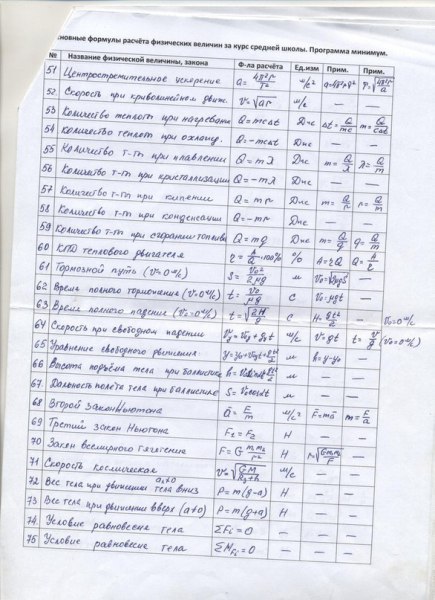 новные формулы расчёта физических величин за курс средней школы. Программа минимум.
№ Название физической величины, закона Ф-ла расчёта Ед.изм Прим. Прим.
51 Центростремительное ускорение a=4π²r/T² м/с² a=4π²rν² r=√
52. Скорость при криволинейном движ. v=√ar м/с — —
53 Количество теплоты при нагревани Q=mcΔt Дж Δt=Q/mc m=Q/cΔt
54 Количество теплоты при охлажд. Q=-mcΔt Дж — —
55 Количество т-ты при плавлении Q=mλ Дж m=Q/λ λ=Q/m
56 Количество т-ты при кристаллизации Q=-mλ Дж — —
57 Количество т-ты при кипении Q=mr Дж m=Q/r r=Q/m
58 Количество т-ты при конденсации Q=-mr Дж — —
59 Количество т-ты при сгорании топлива Q=mq Дж m=Q/q q=Q/m
60 КПД теплового двигателя η=A/Q·100% % A=ηQ Q=A/η
61 Тормозной путь (v=0м/с) S=v₀²/2μg м v₀=√2μgS —
62 Время полного торможения (v=0м/с) t=v₀/μg с v₀=μgt —
63 Время полного падения (v₀=0м/с) t=√2H/g с H=gt²/2 — v₀=0м/с
64 Скорость при свободном падении =v₀y+gyt м/с v=gt t=v/g (v₀=0м/с)
65 Уравнение свободного движения y=y₀+v₀yt+gt²/2 м h=y-y₀ —
66 Высота подъёма тела при баллистике м — —
67 Дальность полёта тела при баллистике S=v₀cosαt м — —
68 Второй закон Ньютона a=F/m м/с² F=ma m=F/a
69 Третий закон Ньютона F₁=F₂ Н — —
70 Закон всемирного тяготения F=G m₁m₂/r² Н r=√Gm₁m₂/F —
71 Скорость космическая v=√GM/R₃+h м/с — —
72 Вес тела при движении тела вниз P=m(g-a) Н — —
73 Вес тела при движении вверх P=m(g+a) Н — —
74. Условие равновесия тела ΣFi=0 — — —
75 Условие равновесия тела ΣMFi=0 — — —